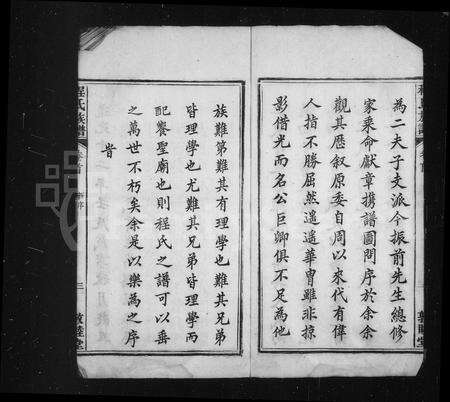 為二夫子支派今振前先生總修
家乘命獻章携譜圖問序於余余
觀其歷叙原委自周以來代有偉
人指不勝屈然遥遥華胄雖非掠
影借光而名公巨卿俱不足為他
族難第難其有理學也難其兄弟
皆理學也尤難其兄弟皆理學而
配饗聖廟也則程氏之譜可以垂
之萬世不朽矣余是以樂為之序
昔
程氏族譜
敦睦堂